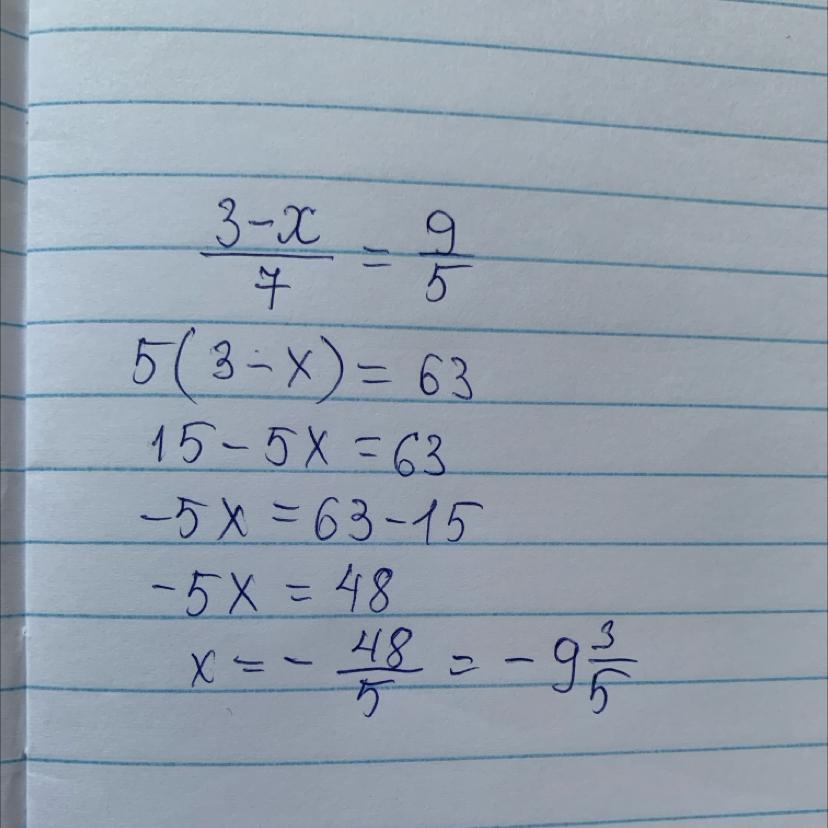 3-x/7 = 9/5
5(3-x) = 63
15-5x = 63
-5x = 63-15
-5x = 48
x = - 48/5 = -9 3/5